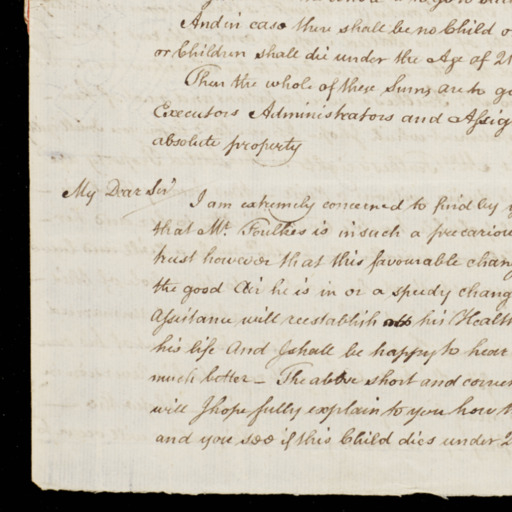 And in case there shall be no Child o
or Children shall die under the Age of 21
Then the whole of these Sums are to go
Executors Administrators and Assig
absolute property
My Dear Sir
I am extremely concerned to find by y
that Mr. Foulkes is in such a precariou
trust however that this favourable chang
the good Air he is in or a speedy chang
Assistance will reestablish his Health
his life And I shall be happy to hear
much better - The above short and correc
will I hope fully explain to you how th
and you see if this Child dies under 2